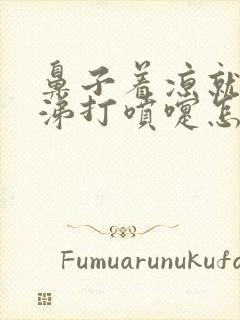 鼻子着凉就
涕打喷嚏怎
Fumuarunukufa